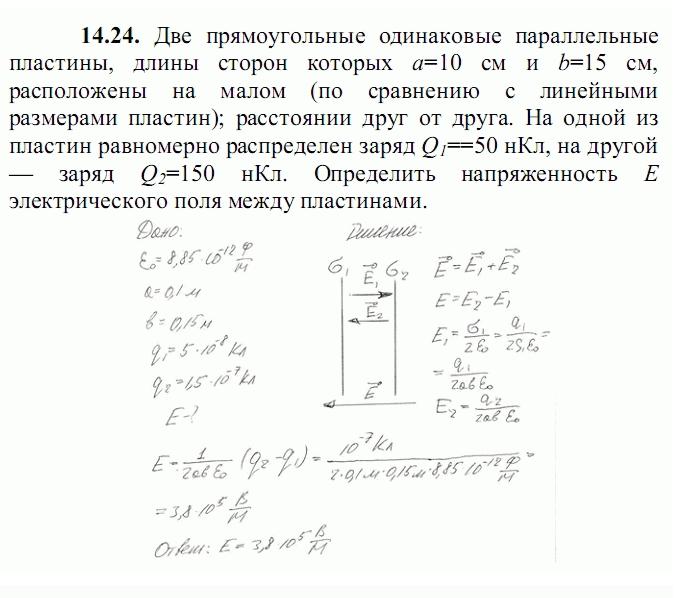 14.24. Две прямоугольные одинаковые параллельные
пластины, длины сторон которых a=10 см и b=15 см,
расположены на малом (по сравнению с линейными
размерами пластин); расстоянии друг от друга. На одной из
пластин равномерно распределен заряд Q₁==50 нКл, на другой
— заряд Q₂=150 нКл. Определить напряженность E
электрического поля между пластинами.
Дано:
ε₀=8,85·10⁻¹² Ф/м
a=0,1 м
b=0,15 м
q₁=5·10⁻⁸ Кл
q₂=1,5·10⁻⁷ Кл
E-?
Решение:
σ₁ E⃗₁ σ₂
E⃗₂
E⃗
E⃗=E⃗₁+E⃗₂
E=E₂-E₁
E₁=σ₁/2ε₀=q₁/2S₁ε₀=
=q₁/2abε₀
E₂=q₂/2abε₀
E=1/2abε₀ (q₂-q₁)=10⁻⁷ Кл/2·0,1м·0,15м·8,85·10⁻¹² Ф/м=
=3,8·10⁵ В/м
Ответ: E=3,8·10⁵ В/м